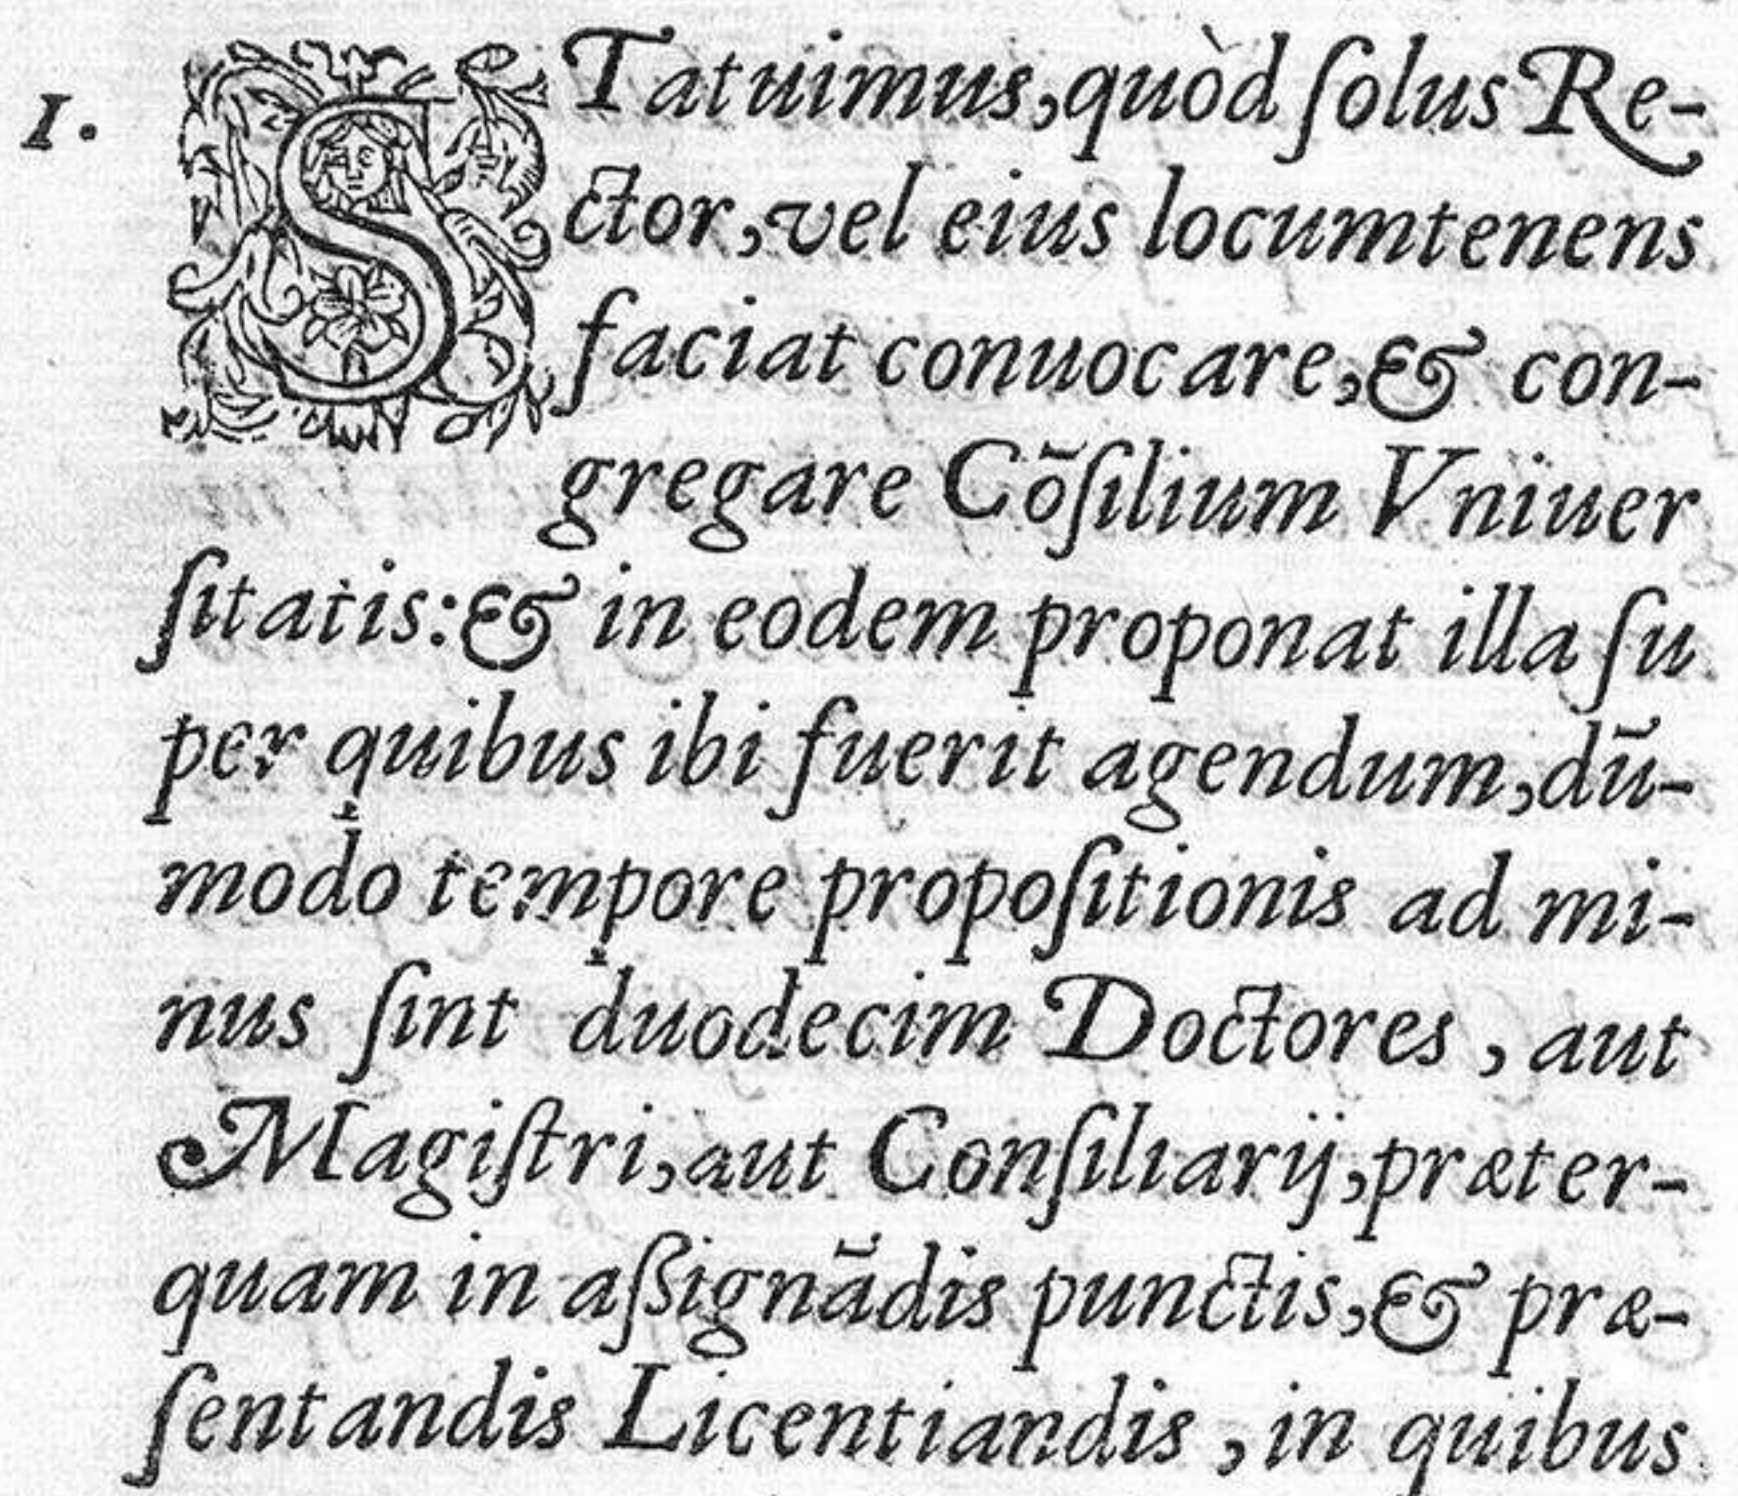 1. STatuimus, quòd ſolus Re-
ctor, vel eius locumtenens
faciat conuocare, & con-
gregare Cõſilium Vniuer
ſitatis: & in eodem proponat illa ſu
per quibus ibi fuerit agendum, dũ-
modo tempore propoſitionis ad mi-
nus ſint duodecim Doctores, aut
Magiſtri, aut Conſiliarij, præter-
quam in aßignãdis punctis, & præ-
ſentandis Licentiandis, in quibus